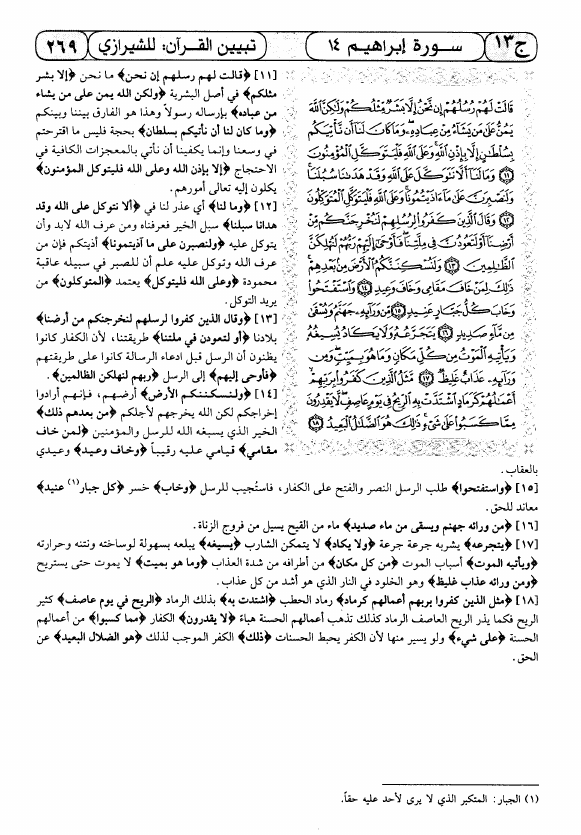 ج١٣
سورة إبراهيم ١٤
تبيين القرآن: للشيرازي
٢٦٩
قَالَتْ لَهُمْ رُسُلُهُمْ إِن نَّحْنُ إِلَّا بَشَرٌ مِّثْلُكُمْ وَلَٰكِنَّ ٱللَّهَ
يَمُنُّ عَلَىٰ مَن يَشَآءُ مِنْ عِبَادِهِۦ وَمَا كَانَ لَنَآ أَن نَّأْتِيَكُم
بِسُلْطَٰنٍ إِلَّا بِإِذْنِ ٱللَّهِ وَعَلَى ٱللَّهِ فَلْيَتَوَكَّلِ ٱلْمُؤْمِنُونَ
١١ وَمَا لَنَآ أَلَّا نَتَوَكَّلَ عَلَى ٱللَّهِ وَقَدْ هَدَىٰنَا سُبُلَنَا
وَلَنَصْبِرَنَّ عَلَىٰ مَآ ءَاذَيْتُمُونَا وَعَلَى ٱللَّهِ فَلْيَتَوَكَّلِ ٱلْمُتَوَكِّلُونَ
١٢ وَقَالَ ٱلَّذِينَ كَفَرُوا۟ لِرُسُلِهِمْ لَنُخْرِجَنَّكُم مِّنْ
أَرْضِنَآ أَوْ لَتَعُودُنَّ فِى مِلَّتِنَا فَأَوْحَىٰٓ إِلَيْهِمْ رَبُّهُمْ لَنُهْلِكَنَّ
ٱلظَّٰلِمِينَ ١٣ وَلَنُسْكِنَنَّكُمُ ٱلْأَرْضَ مِنۢ بَعْدِهِمْ
ذَٰلِكَ لِمَنْ خَافَ مَقَامِى وَخَافَ وَعِيدِ ١٤ وَٱسْتَفْتَحُوا۟
وَخَابَ كُلُّ جَبَّارٍ عَنِيدٍ ١٥ مِّن وَرَآئِهِۦ جَهَنَّمُ وَيُسْقَىٰ
مِن مَّآءٍ صَدِيدٍ ١٦ يَتَجَرَّعُهُۥ وَلَا يَكَادُ يُسِيغُهُۥ
وَيَأْتِيهِ ٱلْمَوْتُ مِن كُلِّ مَكَانٍ وَمَا هُوَ بِمَيِّتٍ وَمِن
وَرَآئِهِۦ عَذَابٌ غَلِيظٌ ١٧ مَّثَلُ ٱلَّذِينَ كَفَرُوا۟ بِرَبِّهِمْ
أَعْمَٰلُهُمْ كَرَمَادٍ ٱشْتَدَّتْ بِهِ ٱلرِّيحُ فِى يَوْمٍ عَاصِفٍ لَّا يَقْدِرُونَ
مِمَّا كَسَبُوا۟ عَلَىٰ شَىْءٍ ذَٰلِكَ هُوَ ٱلضَّلَٰلُ ٱلْبَعِيدُ ١٨
[١١] ﴿قالت لهم رسلهم إن نحن﴾ ما نحن ﴿إلا بشر
مثلكم﴾ في أصل البشرية ﴿ولكن الله يمن على من يشاء
من عباده﴾ بإرساله رسولاً وهذا هو الفارق بيننا وبينكم
﴿وما كان لنا أن نأتيكم بسلطان﴾ بحجة فليس ما اقترحتم
في وسعنا وإنما يكفينا أن نأتي بالمعجزات الكافية في
الاحتجاج ﴿إلا بإذن الله وعلى الله فليتوكل المؤمنون﴾
يكلون إليه تعالى أمورهم.
[١٢] ﴿وما لنا﴾ أي عذر لنا في ﴿ألا نتوكل على الله وقد
هدانا سبلنا﴾ سبل الخير فعرفناه ومن عرف الله لابد وأن
يتوكل عليه ﴿ولنصبرن على ما آذيتمونا﴾ أذيتكم فإن من
عرف الله وتوكل عليه علم أن للصبر في سبيله عاقبة
محمودة ﴿وعلى الله فليتوكل﴾ يعتمد ﴿المتوكلون﴾ من
يريد التوكل.
[١٣] ﴿وقال الذين كفروا لرسلهم لنخرجنكم من أرضنا﴾
بلادنا ﴿أو لتعودن في ملتنا﴾ طريقتنا، لأن الكفار كانوا
يظنون أن الرسل قبل ادعاء الرسالة كانوا على طريقتهم
﴿فأوحى إليهم﴾ إلى الرسل ﴿ربهم لنهلكن الظالمين﴾.
[١٤] ﴿ولنسكننكم الأرض﴾ أرضهم، فإنهم أرادوا
إخراجكم لكن الله يخرجهم لأجلكم ﴿من بعدهم ذلك﴾
الخير الذي يسبغه الله للرسل والمؤمنين ﴿لمن خاف
مقامي﴾ قيامي عليه رقيباً ﴿وخاف وعيد﴾ وعيدي
بالعقاب.
[١٥] ﴿واستفتحوا﴾ طلب الرسل النصر والفتح على الكفار، فاستُجيب للرسل ﴿وخاب﴾ خسر ﴿كل جبار(١) عنيد﴾
معاند للحق.
[١٦] ﴿من ورائه جهنم ويسقى من ماء صديد﴾ ماء من القيح يسيل من فروج الزناة.
[١٧] ﴿يتجرعه﴾ يشربه جرعة جرعة ﴿ولا يكاد﴾ لا يتمكن الشارب ﴿يسيغه﴾ يبلعه بسهولة لوساخته ونتنه وحرارته
﴿ويأتيه الموت﴾ أسباب الموت ﴿من كل مكان﴾ من أطرافه من شدة العذاب ﴿وما هو بميت﴾ لا يموت حتى يستريح
﴿ومن ورائه عذاب غليظ﴾ وهو الخلود في النار الذي هو أشد من كل عذاب.
[١٨] ﴿مثل الذين كفروا بربهم أعمالهم كرماد﴾ رماد الحطب ﴿اشتدت به﴾ بذلك الرماد ﴿الريح في يوم عاصف﴾ كثير
الريح فكما يذر الريح العاصف الرماد كذلك تذهب أعمالهم الحسنة هباءً ﴿لا يقدرون﴾ الكفار ﴿مما كسبوا﴾ من أعمالهم
الحسنة ﴿على شيء﴾ ولو يسير منها لأن الكفر يحبط الحسنات ﴿ذلك﴾ الكفر الموجب لذلك ﴿هو الضلال البعيد﴾ عن
الحق.
(١) الجبار: المتكبر الذي لا يرى لأحد عليه حقاً.